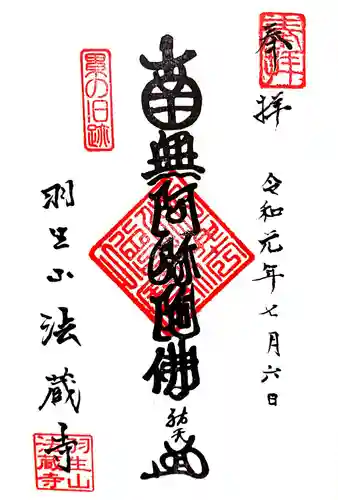 奉拝
奉拝
令和元年七月六日
南無阿弥陀佛
祐天
累の旧跡
羽生山法蔵寺
羽生山
法蔵寺